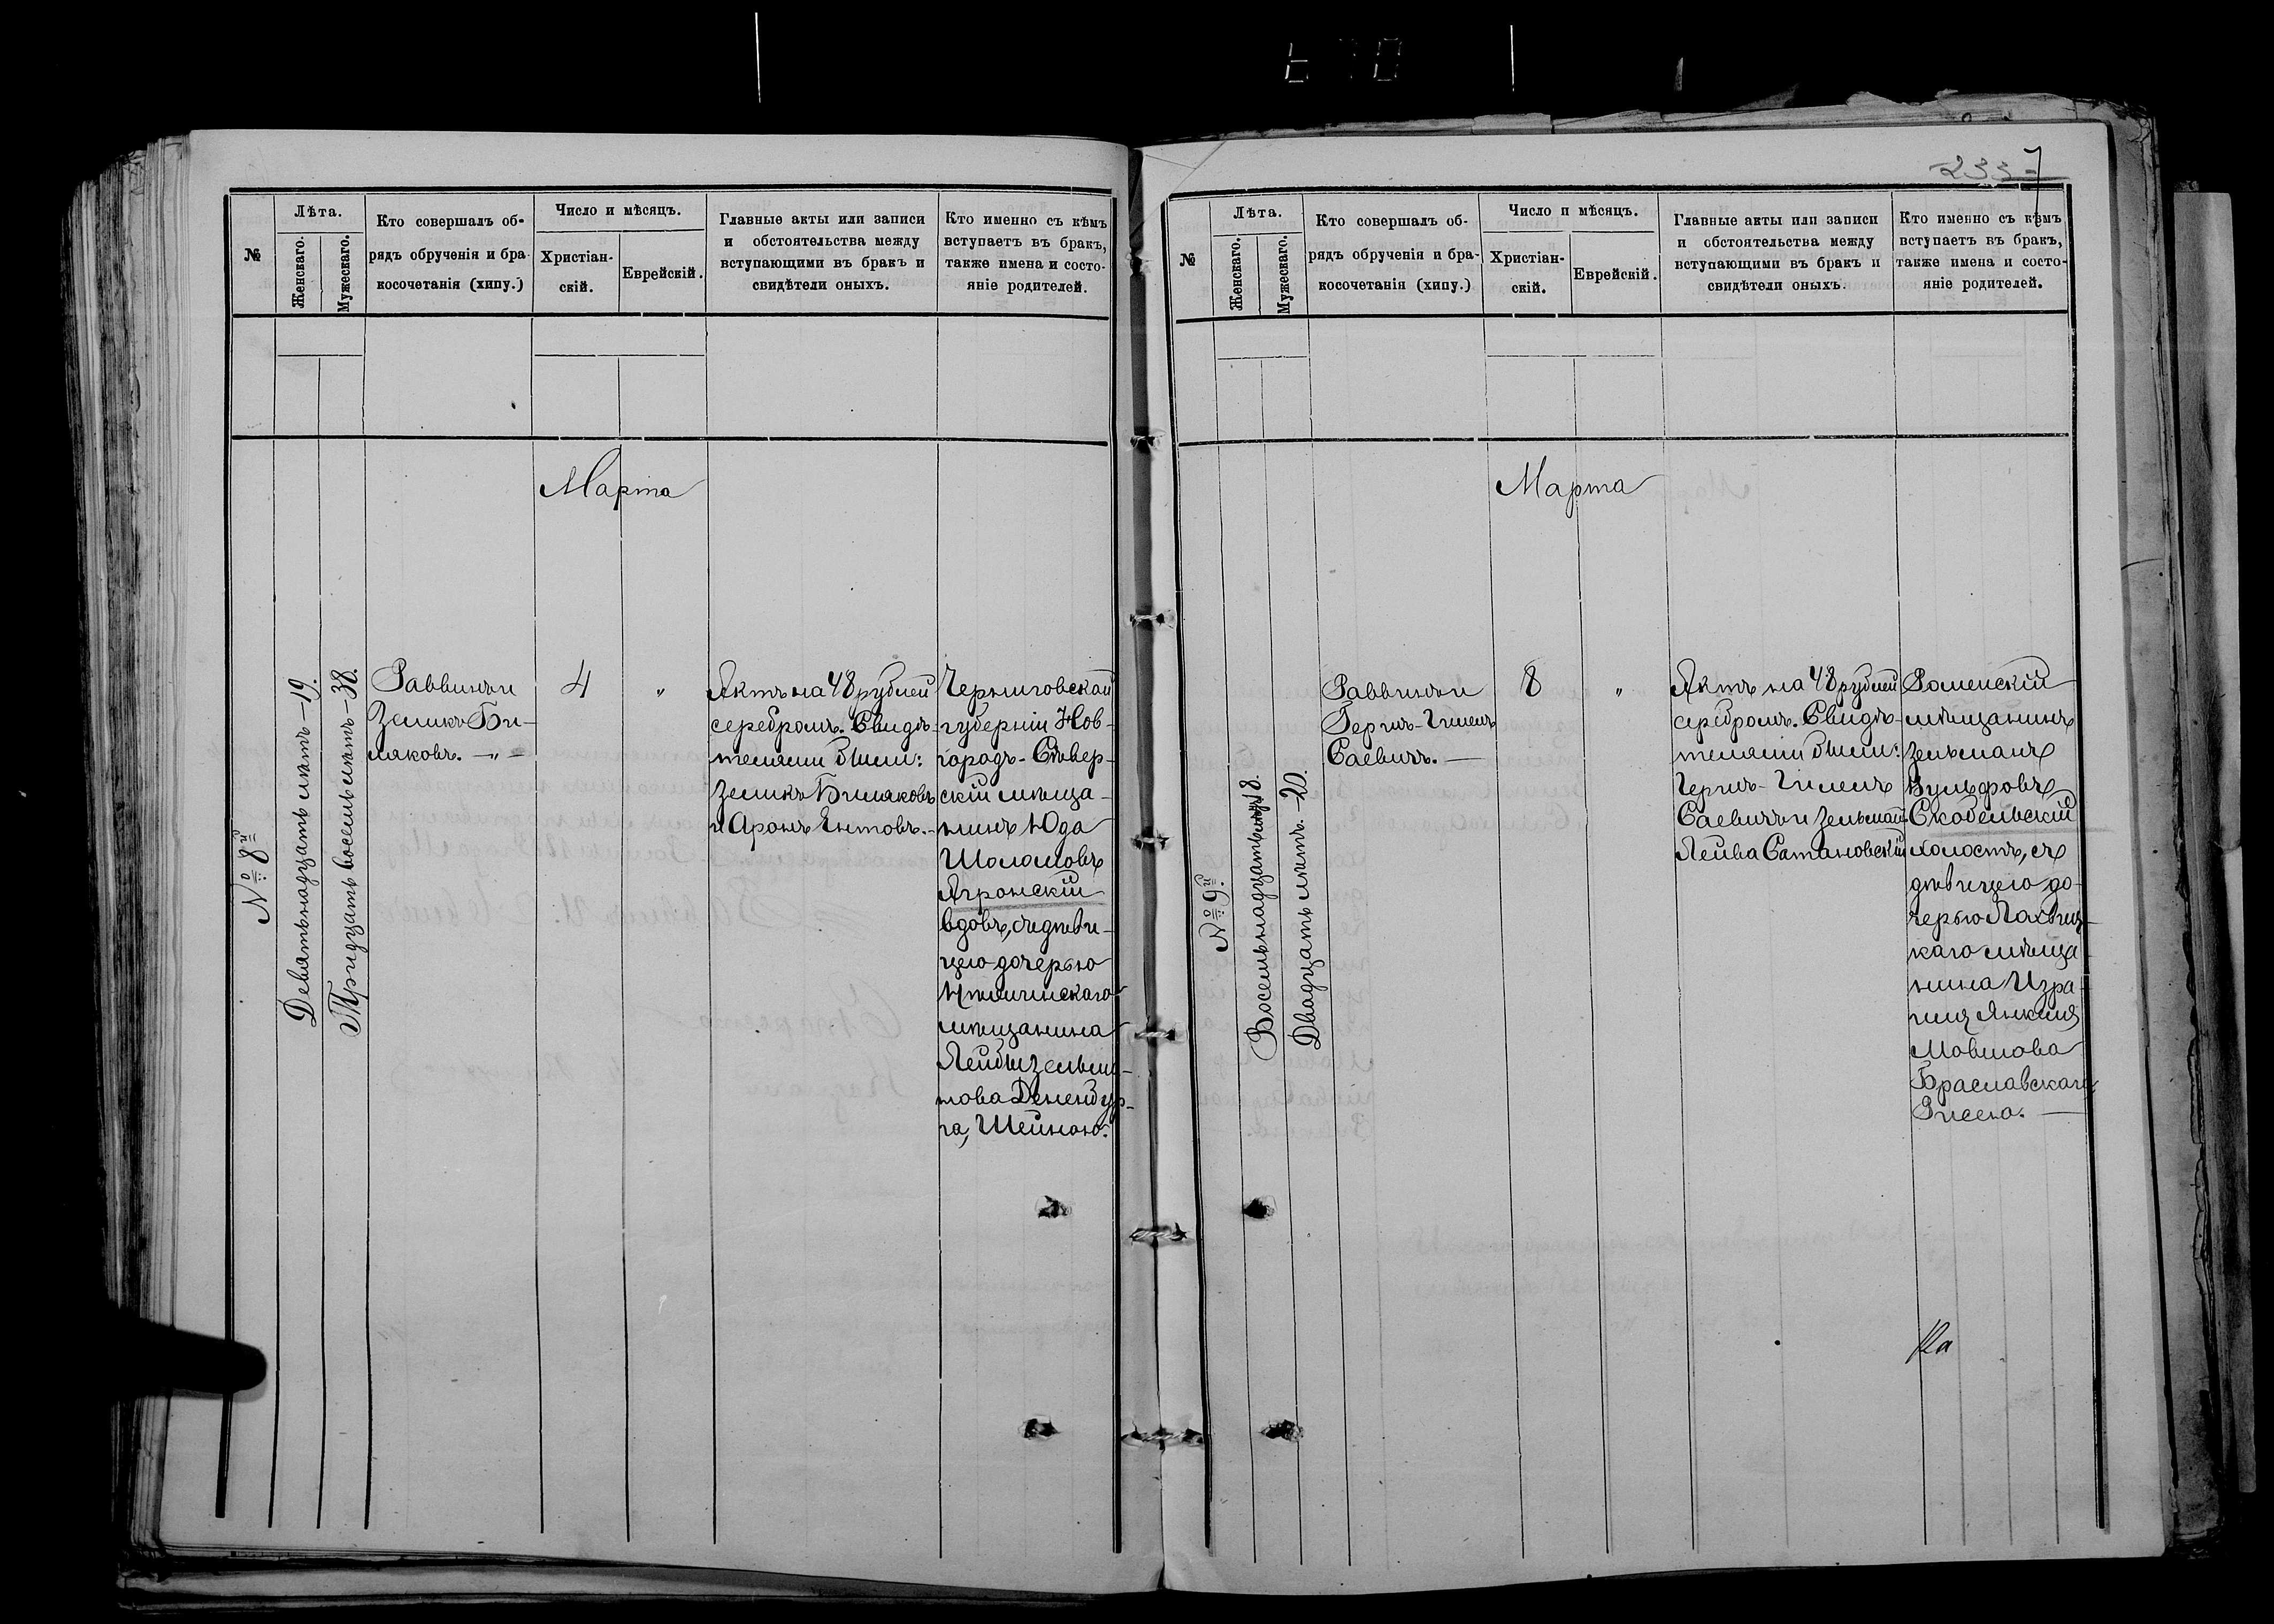 233
7
№
Лѣта.
Женскаго.
Мужескаго.
Кто совершалъ об-
рядъ обрученія и бра-
косочетанія (хипу.)
Число и мѣсяцъ.
Христіан-
скій.
Еврейскій.
Главные акты или записи
и обстоятельства между
вступающими въ бракъ и
свидѣтели оныхъ.
Кто именно съ кѣмъ
вступаетъ въ бракъ,
также имена и состо-
яніе родителей.
Марта
№ 8й
Девятьнадцать лѣтъ — 19.
Тридцать восемь лѣтъ — 38.
Раввинъ и
Зеликъ Би-
ляковъ. — „ —
4
„
Актъ на 48 рублей
серебромъ. Свидѣ-
телями были:
Зеликъ Биляковъ
и Аронъ Ентовъ. —
Черниговской
губерніи Нов-
городъ-Сѣвер-
скій мѣща-
нинъ Юда
Шоломовъ
Агронскій
вдовъ, съ дѣви-
цею дочерью
мѣщанина
Лейбы Зельма-
нова Дененбур-
га, Шейною.
№
Лѣта.
Женскаго.
Мужескаго.
Кто совершалъ об-
рядъ обрученія и бра-
косочетанія (хипу.)
Число и мѣсяцъ.
Христіан-
скій.
Еврейскій.
Главные акты или записи
и обстоятельства между
вступающими въ бракъ и
свидѣтели оныхъ.
Кто именно съ кѣмъ
вступаетъ въ бракъ,
также имена и состо-
яніе родителей.
Марта
№ 9й
Восемьнадцать лѣтъ 18.
Двадцать лѣтъ. — 20.
Раввинъ и
Герцъ-Гилель
Саевичъ. —
8
„
Актъ на 48 рублей
серебромъ. Свидѣ-
телями были:
Герцъ-Гилель
Саевичъ и Зельманъ
Лейва Сатановскій
Роменскій
мѣщанинъ
Зельманъ
Вульфовъ
Скобельскій
холостъ, съ
дѣвицею до-
черью Лохвиц-
каго мѣща-
нина Изра-
иля Янкеля
Мовшова
Браславскаго
Рисею. —